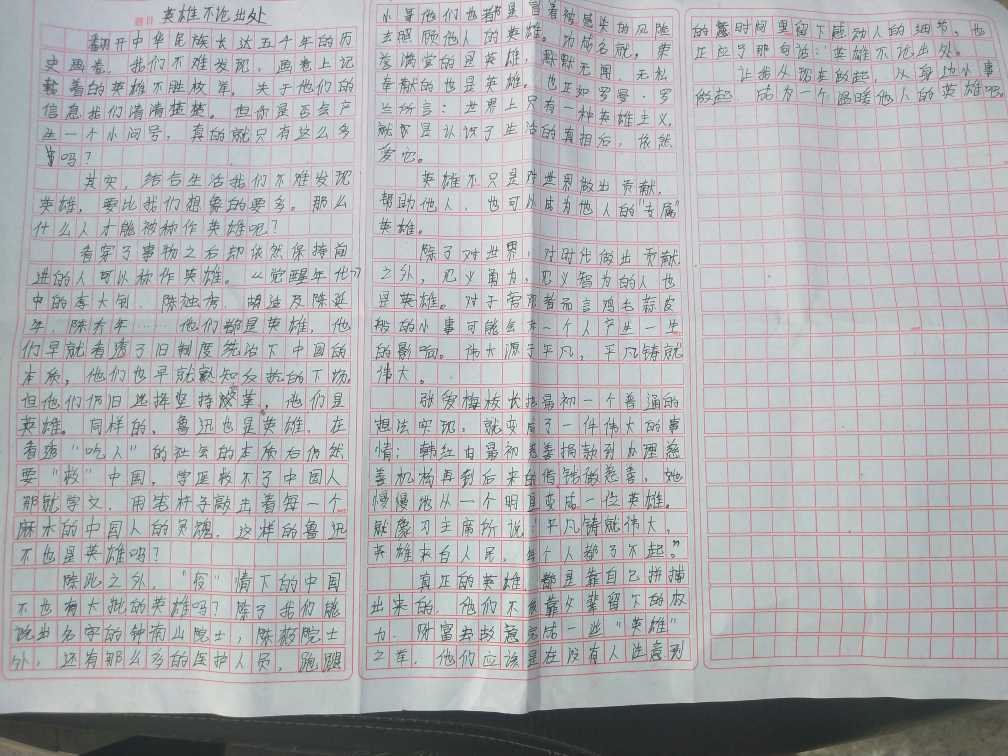 题目 英雄不论出处
翻开中华民族长达五千年的历
史画卷，我们不难发现，画卷上记
载着的英雄不胜枚举。关于他们的
信息我们清清楚楚。但你是否会产
生一个小问号，真的就只有这么多
吗？
其实，结合生活我们不难发现
英雄，要比我们想象的要多。那么
什么人才能被称作英雄呢？
看穿了事物之后却依然保持前
进的人可以称作英雄。《觉醒年代》
中的李大钊、陈独秀、胡适及陈延
年、陈乔年……他们都是英雄，他
们早就看透了旧制度统治下中国的
本质，他们也早就熟知反抗的下场，
但他们仍旧选择坚持改革，他们是
英雄。同样的，鲁迅也是英雄，在
看透“吃人”的社会的本质后仍然
要“救”中国，学医救不了中国人
那就学文，用笔杆子敲击着每一个
麻木的中国人的灵魂，这样的鲁迅
不也是英雄吗？
除此之外，“疫”情下的中国
不也有大批的英雄吗？除了我们能
说出名字的钟南山院士，陈薇院士
外，还有那么多的医护人员，跑腿
小哥他们也都是冒着被感染的风险
去照顾他人的英雄。功成名就，荣
誉满堂的是英雄，默默无闻，无私
奉献的也是英雄。也正如罗曼·罗
兰所言：世界上只有一种英雄主义，
就是认识了生活的真相后，依然
爱它。
英雄不只是对世界做出贡献，
帮助他人，也可以成为他人的“专属”
英雄。
除了对世界，对时代做出贡献
之外，见义勇为，见义智为的人也
是英雄。对于旁观者而言鸡毛蒜皮
般的小事可能会在一个人产生一生
的影响。伟大源于平凡，平凡铸就
伟大。
张桂梅校长把最初一个普通的
想法实现，就变成了一件伟大的事
情；韩红由最初慈善捐款到办理慈
善机构再到后来的借钱做慈善，她
慢慢地从一个明星变成一位英雄。
就像习主席所说“平凡铸就伟大，
英雄来自人民，每个人都了不起。”
真正的英雄，都是靠自己拼搏
出来的，他们不靠父辈留下的权
力、财富去故意完成一些“英雄”
之举，他们应该是在没有人注意到
的时间里留下感动人的细节，也
正应了那句话：英雄不论出处。
让我从现在做起，从身边小事
做起，成为一个温暖他人的英雄吧。